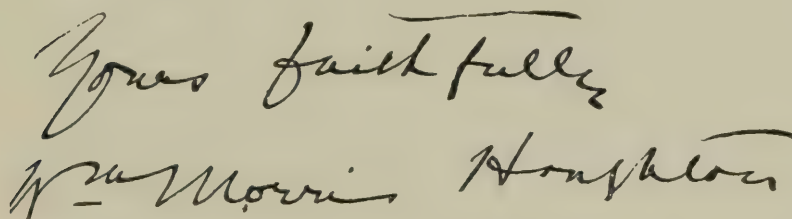 Yours faithfully
Wm Morris Houghton